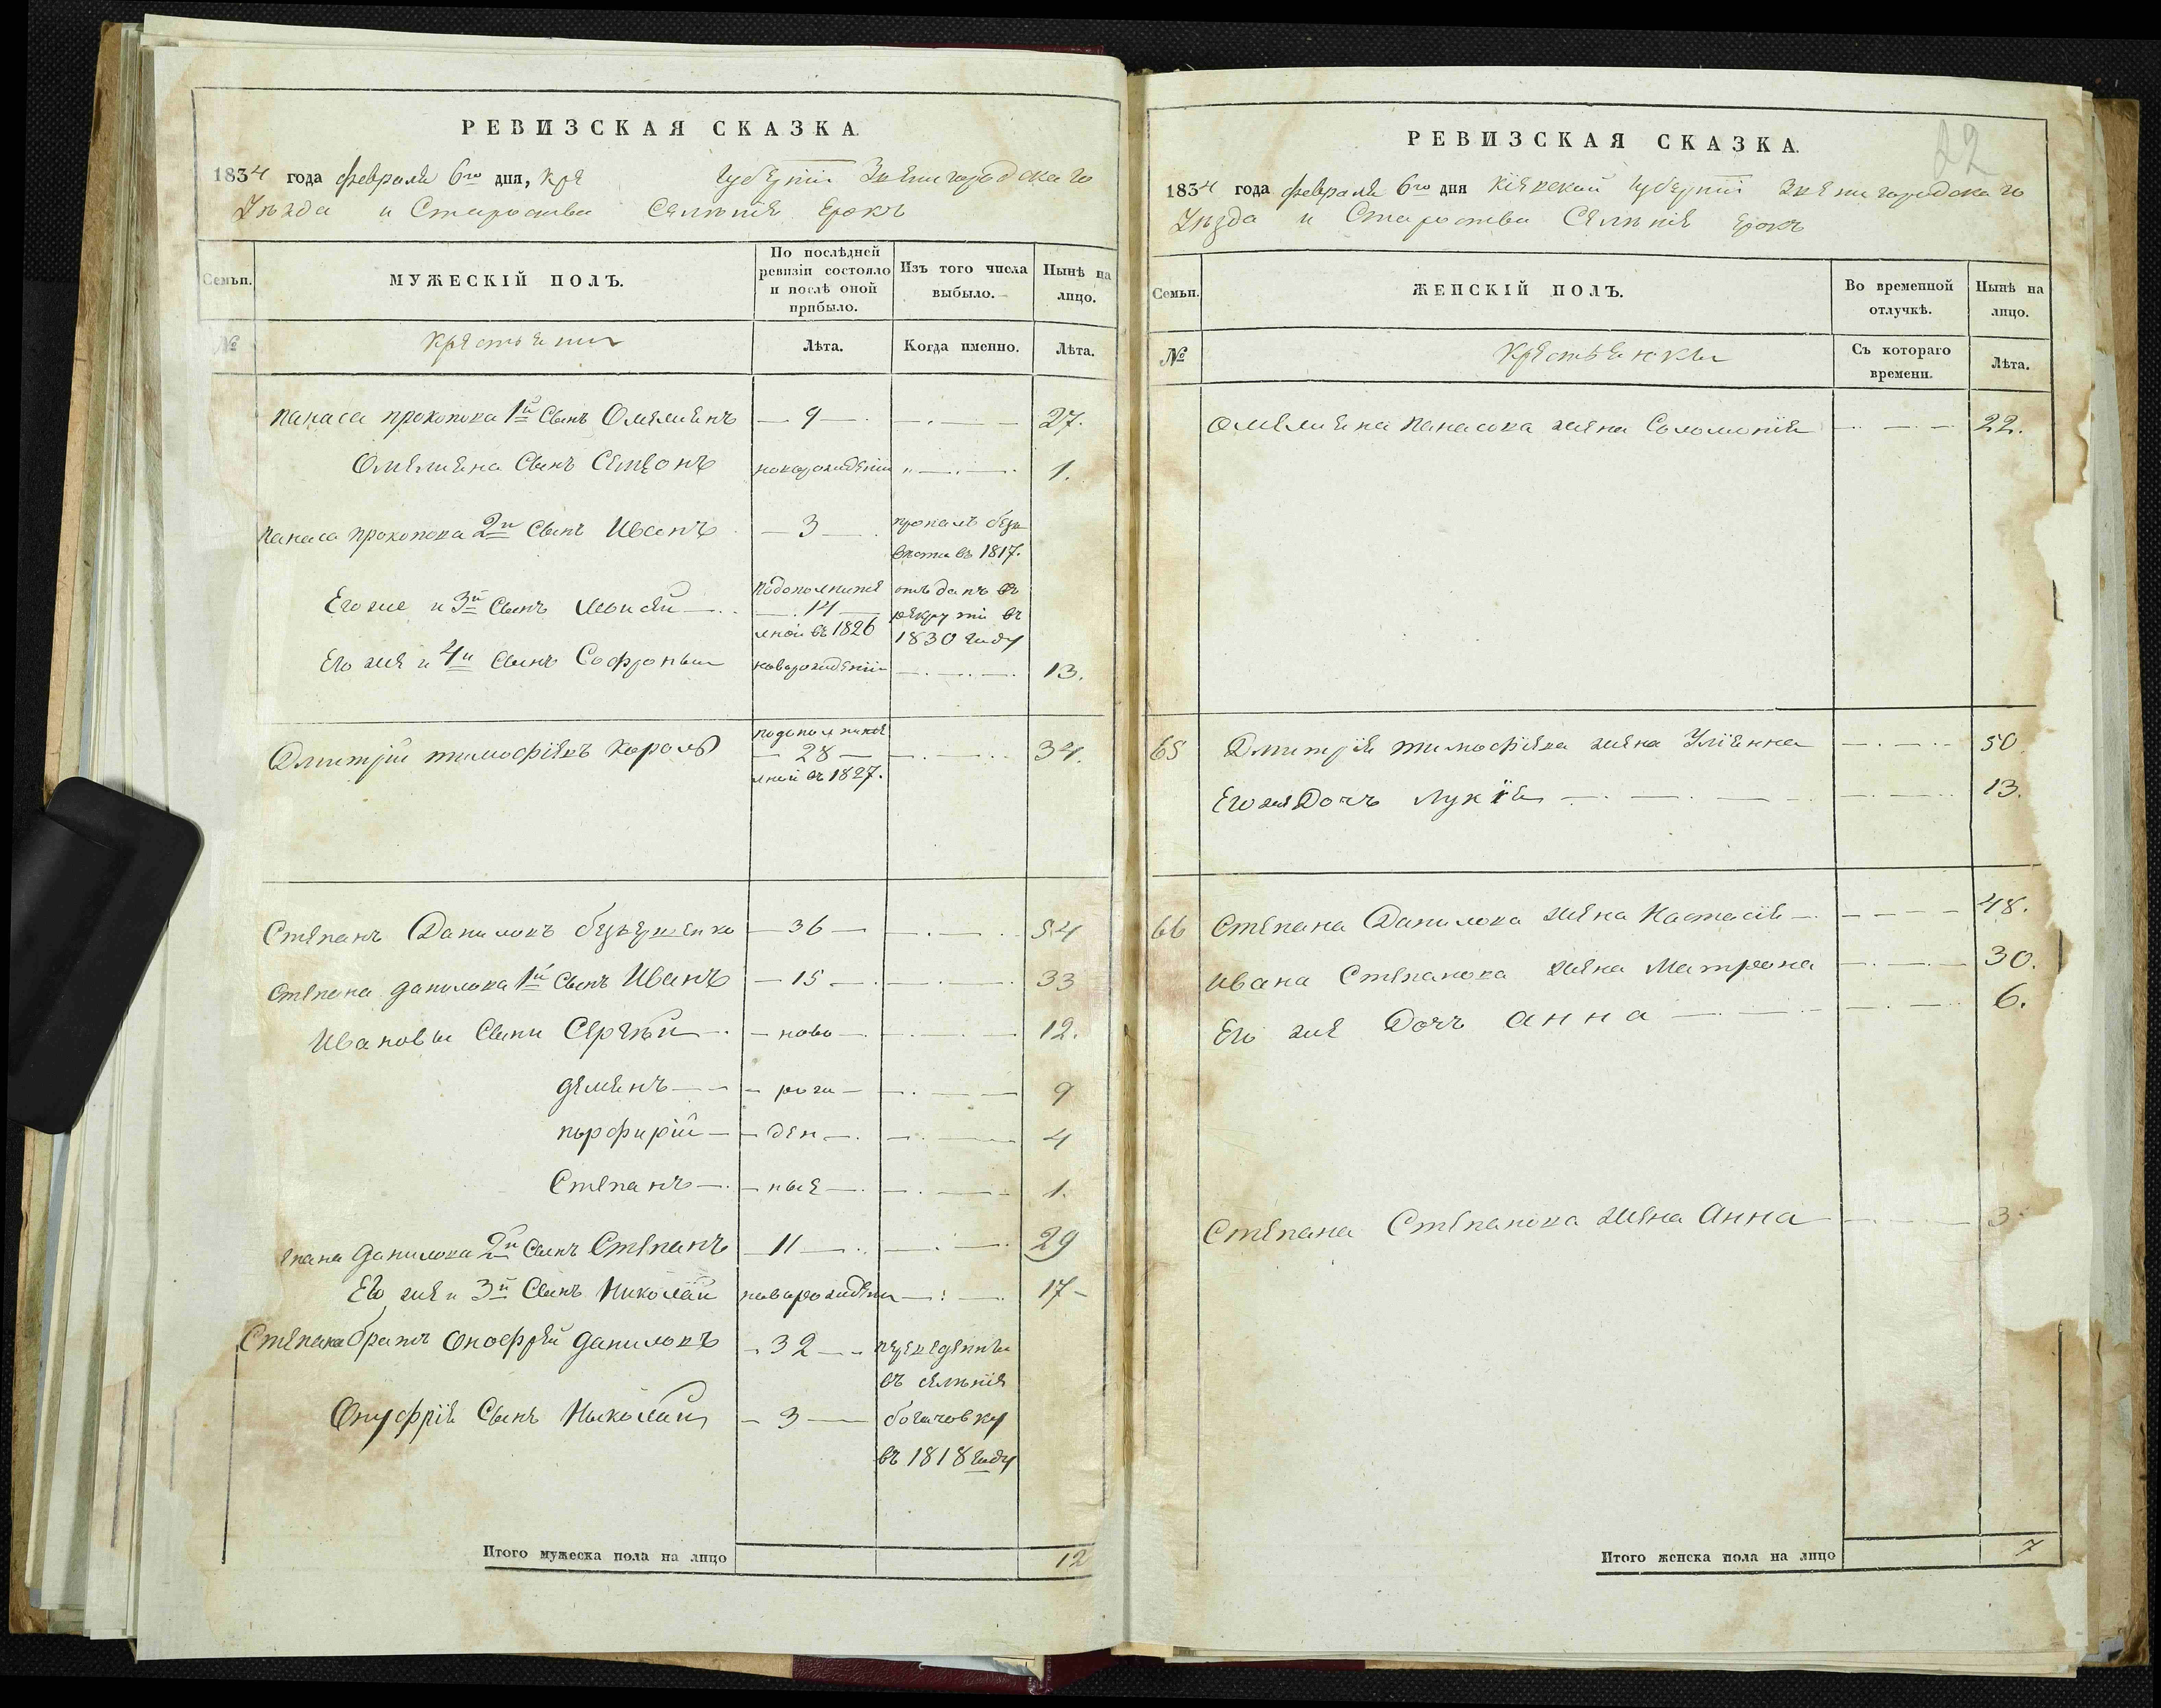 РЕВИЗСКАЯ СКАЗКА.
1834 года февраля 6го дня, Кре губернии Звенигородскаго
Уезда и Староства Селения Ерокъ
Семьи.
МУЖЕСКІЙ ПОЛЪ.
По послѣдней ревизіи состояло и послѣ оной прибыло.
Изъ того числа выбыло.
Нынѣ на лицо.
№
Крестьяни
Лѣта.
Когда именно.
Лѣта.
Панаса Прокопова 1й Сынъ Омелианъ — 9 — 27.
Омеляна Сынъ Семіонъ новорожденни 1.
Панаса Прокопова 2й Сынъ Иванъ — 3 — пропалъ безъ
вести въ 1817.
Его же и 3й Сынъ Моисей подополните 14 лной въ 1826 отъданъ въ рекруты въ 1830 году
Его же и 4й Сынъ Софроний новорожденни 13.
Дмитрій Тимофіевъ Король подополните — 28 — лной въ 1827. 34.
Степанъ Даниловъ — 36 — 54
Степана Данилова 1й Сынъ Иванъ — 15 — 33
Ивановы Сыни Сергѣй — ново — 12.
Демянъ — рож — 9
Порфирій — ден — 4
Степанъ — ные — 1.
епана Данилова 2й Сынъ Степанъ — 11 — 29
Его же и 3й Сынъ Николай новорожденни 17
Степана братъ Оноефрей Даниловъ — 32 — переведенны
въ селѣніе
Онуфрія Сынъ Николай — 3 — богачовку
въ 1818 году
Итого мужеска пола на лицо 12
22
РЕВИЗСКАЯ СКАЗКА.
1834 года февраля 6го дня Кіевской Губерніи Звенигородскаго
Уезда и Староства Селѣнія Ерокъ
Семьи.
ЖЕНСКІЙ ПОЛЪ.
Во временной отлучкѣ.
Нынѣ на лицо.
№
Крестьянкы
Съ котораго времени.
Лѣта.
Омеляна Панасова жена Соломонія 22.
65 Дмитрія Тимофіева жена Уліянна 50
Его же Дочъ Лукія 13.
66 Степана Данилова жена Настасія 48.
Ивана Степанова жена Матрона 30.
Его же Дочъ Анна 6.
Степана Степанова жена Анна 3
Итого женска пола на лицо 7